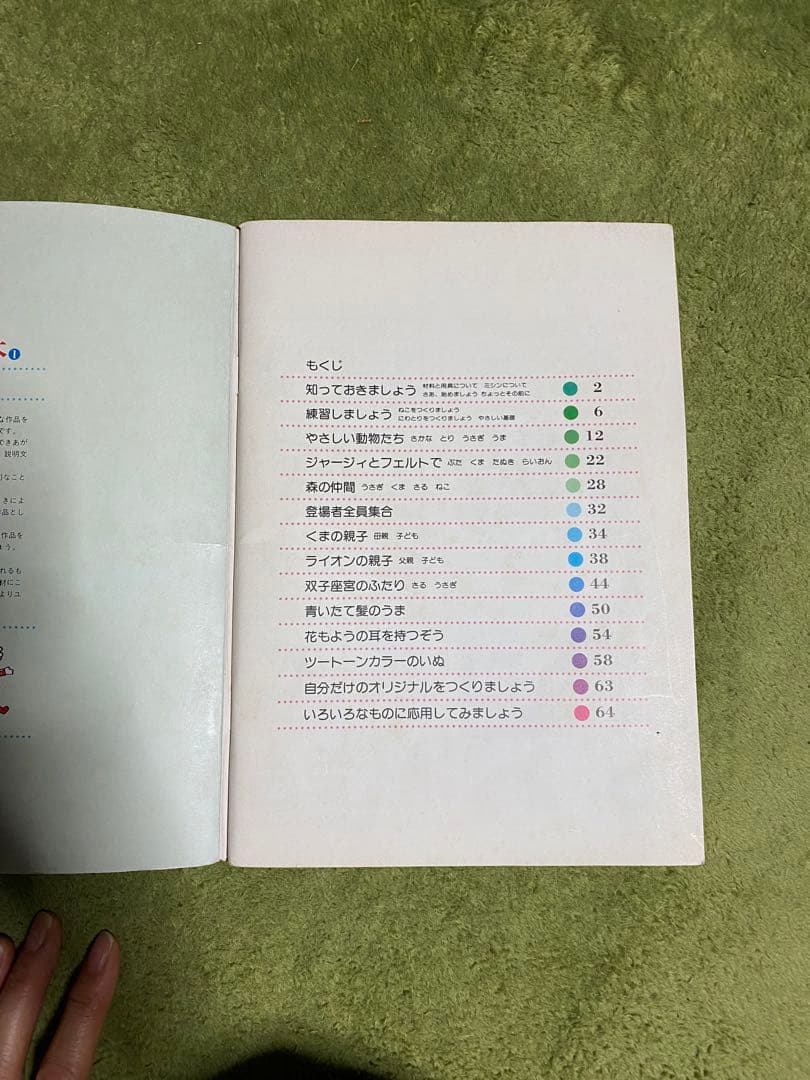 ❶
な作品を
です。
できあが
説明文
的なこと
きによ
作品とし
作品を
ょう。
れるも
材にこ
よりユ
もくじ
知っておきましょう 材料と用具について ミシンについて
さあ、始めましょう ちょっとその前に 2
練習しましょう ねこをつくりましょう
にわとりをつくりましょう やさしい基礎 6
やさしい動物たち さかな とり うさぎ うま 12
ジャージィとフェルトで ぶた くま たぬき らいおん 22
森の仲間 うさぎ くま さる ねこ 28
登場者全員集合 32
くまの親子 母親 子ども 34
ライオンの親子 父親 子ども 38
双子座宮のふたり さる うさぎ 44
青いたて髪のうま 50
花もようの耳を持つぞう 54
ツートーンカラーのいぬ 58
自分だけのオリジナルをつくりましょう 63
いろいろなものに応用してみましょう 64